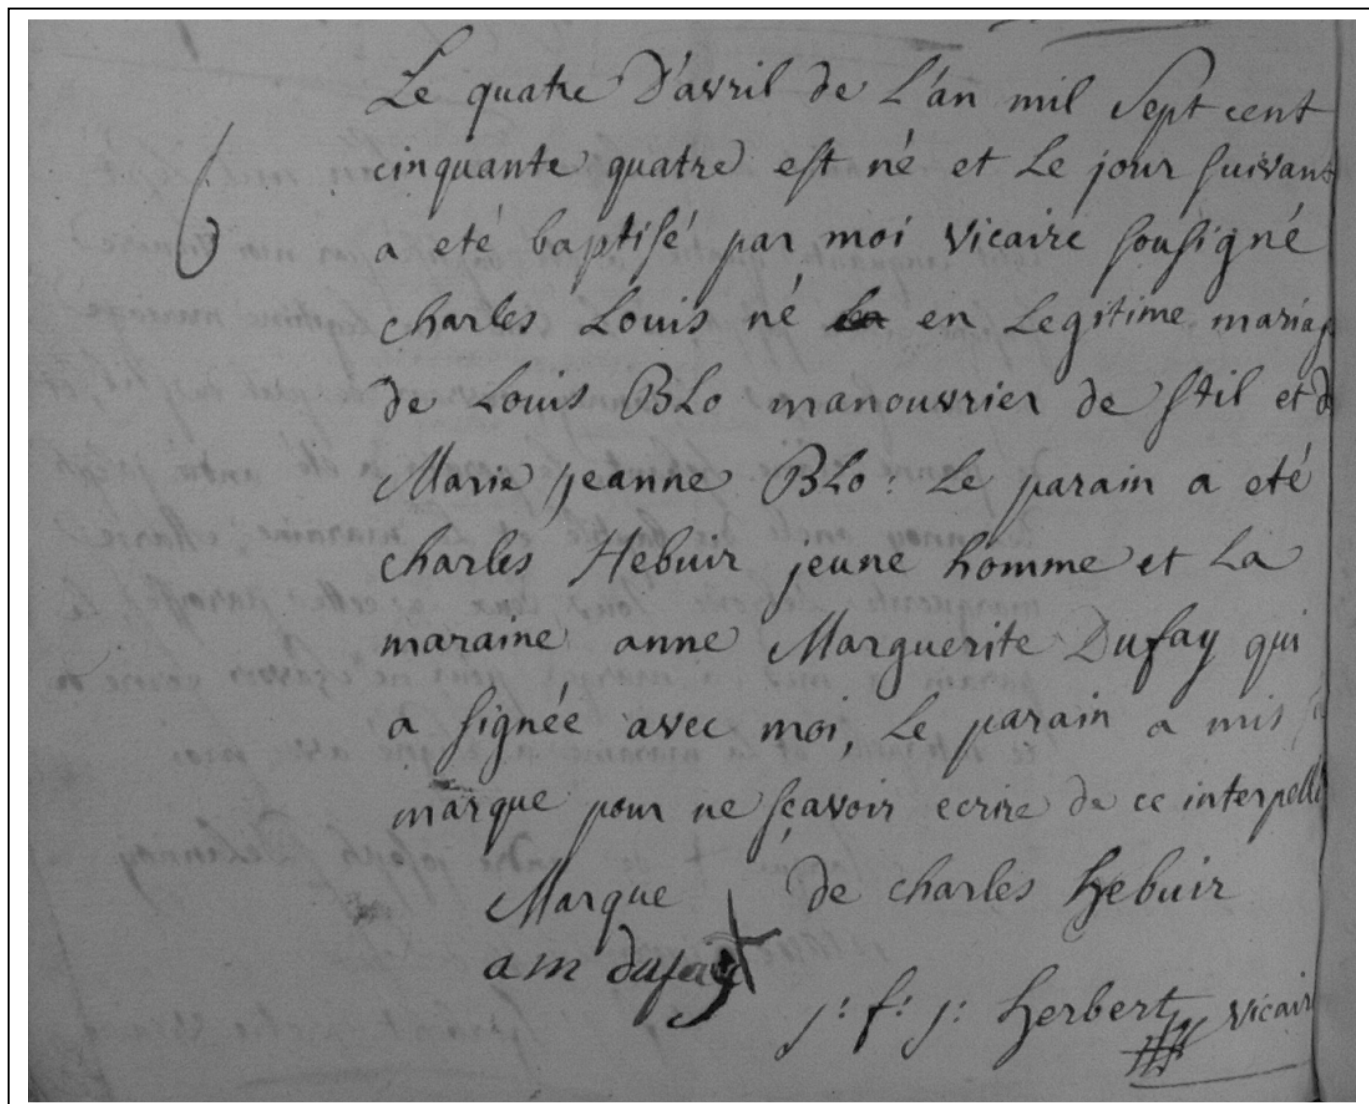 Le quatre D'avril de L'an mil Sept cent
cinquante quatre est né et Le jour suivant
a eté baptisé par moi vicaire sousigné
charles Louis né en Legitime mariag
de Louis BLo manouvrier de stil et d
Marie jeanne BLo : Le parain a eté
charles Hebuir jeune homme et La
maraine anne Marguerite Dufay qui
a signée avec moi, Le parain a mis
marque pour ne sçavoir ecrire de ce interpellé
Marque de charles Hebuir
a m dufay
j : f : j : Herbert vicair